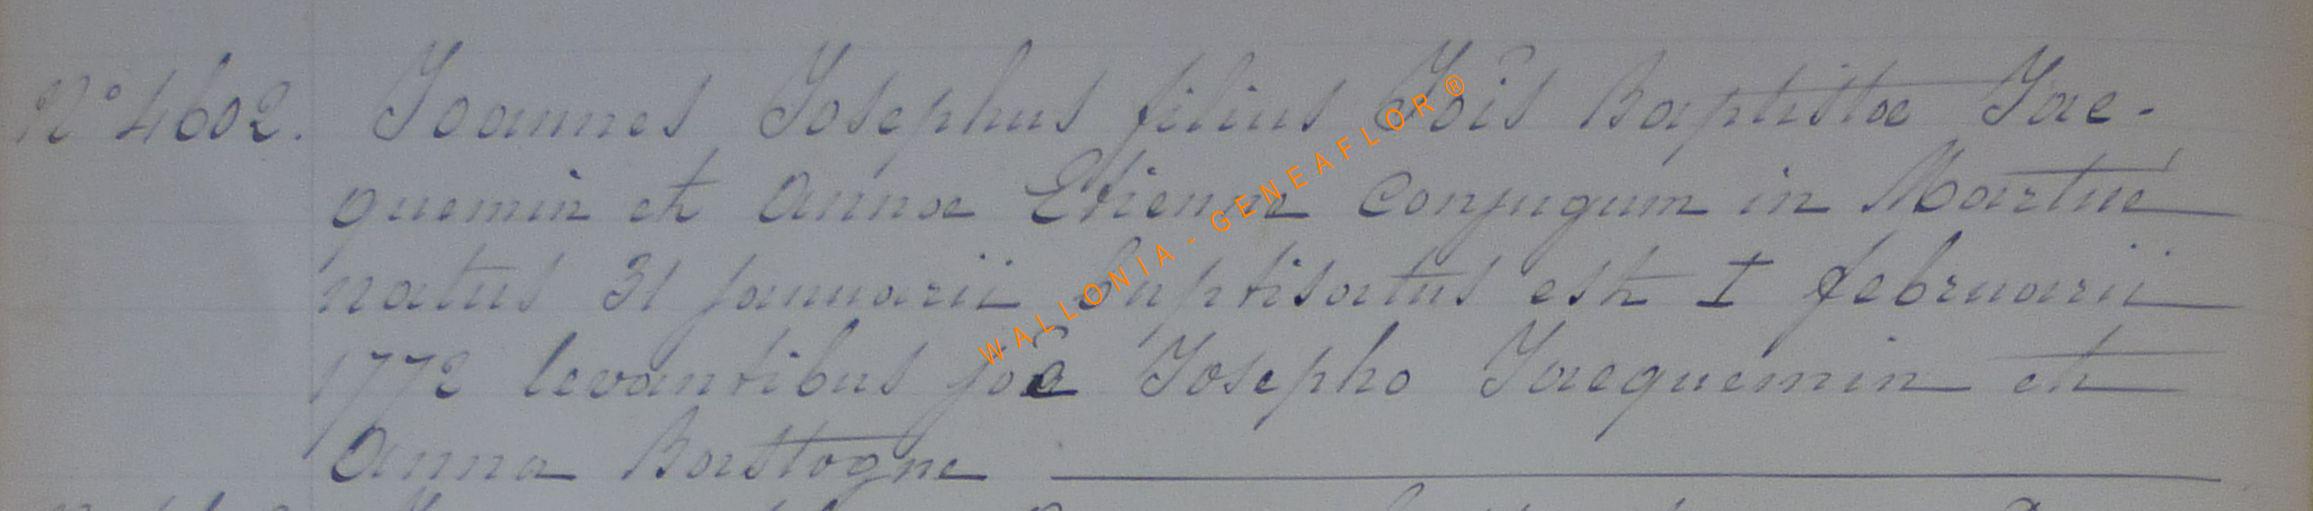 N° 4602. Joannes Josephus filius Jois Baptistæ Jac-
quemin et Annæ Etienne Conjugum in Martué
natus 31 januarii baptisatus est I februarii
1772 levantibus joe Josepho Jacquemin et
Anna Bastogne
WALLONIA - GENEAFLOR ®